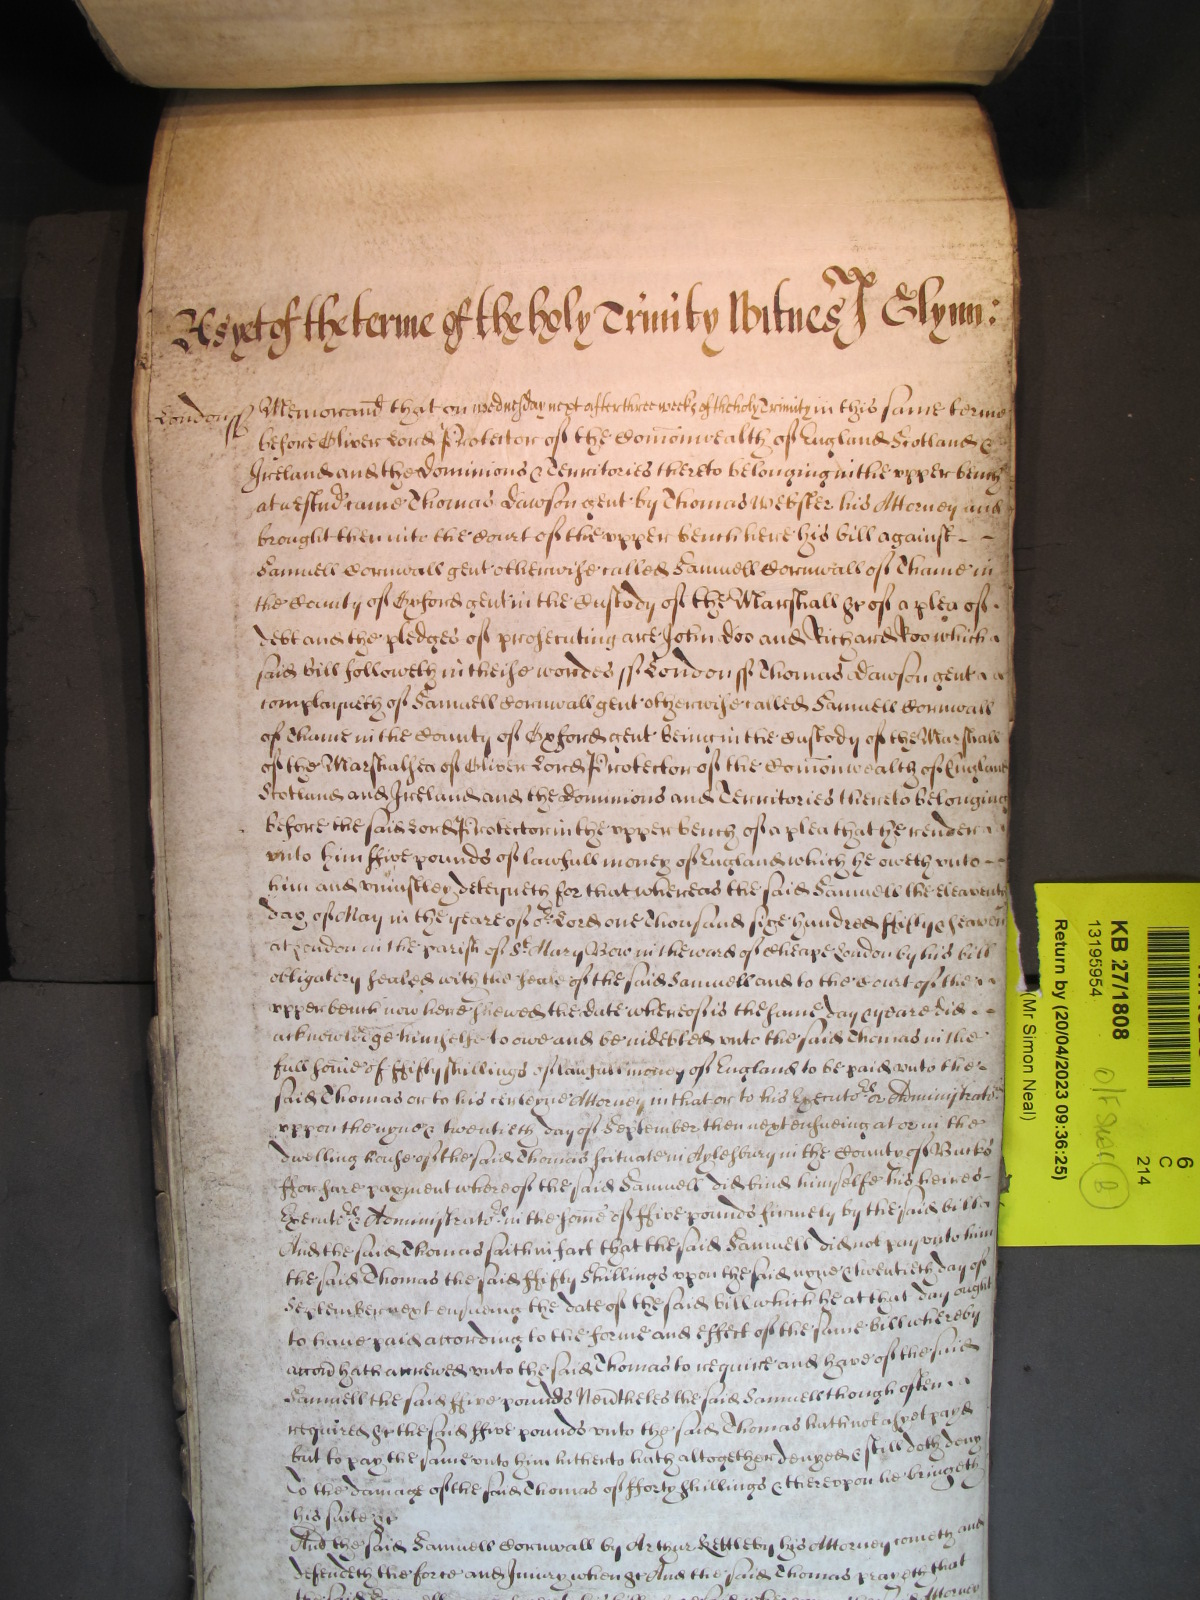 As yet of the terme of the holy Trinity Witnes J Glynn:
London ss
Memorand that on wednesday next after three weeks of the holy Trinity in this same terme
before Oliver Lord Protector of the Comonwealth of England Scotland &
Ireland and the Dominions & Territories thereto belonging in the upper bench
at westmr came Thomas Dawson gent by Thomas Webster his Attorney and
brought then into the Court of the upper bench here his bill against
Samuell Cornwall gent otherwise called Samuell Cornwall of Thame in
the County of Oxford gent in the Custody of the Marshall &c of a plea of
debt and the pledges of prosecuting are John Doo and Richard Roo which
said bill followeth in theise wordes ss London ss Thomas Dawson gent
complayneth of Samuell Cornwall gent otherwise called Samuell Cornwall
of Thame in the County of Oxford gent being in the Custody of the Marshall
of the Marshalsea of Oliver Lord Protector of the Comonwealth of England
Scotland and Ireland and the Dominions and Territories thereto belonging
before the said Lord Protector in the upper bench of a plea that he render
unto him ffive pounds of lawfull money of England which he oweth unto
him and uniustley deteyneth for that whereas the said Samuell the eleaventh
day of May in the yeare of or Lord one Thousand sixe hundred ffifty & seaven
at London in the parish of St Mary Bow in the ward of Cheape London by his bill
obligatory sealed with the seale of the said Samuell and to the Court of the
upper bench now here shewed the date whereof is the same day & yeare did
acknowledge himselfe to owe and be indebted unto the said Thomas in the
full some of ffifty shillings of lawfull money of England to be paid unto the
said Thomas or to his certeyne Attorney in that or to his Executors or Administrators
uppon the nyne & twentieth day of September then next ensueing at or in the
dwelling house of the said Thomas scituate in Aylesbury in the County of Bucks
ffor sure payment whereof the said Samuell did bind himselfe his heires
Executors & Administrators in the some of ffive pounds firmely by the said bill
And the said Thomas saith in fact that the said Samuell did not pay unto him
the said Thomas the said ffifty Shillings upon the said nyne & twentieth day of
September next ensueing the date of the said bill which he at that day ought
to have paid according to the forme and effect of the same bill whereby
accon hath accrewed unto the said Thomas to require and have of the said
Samuell the said ffive pounds Nevtheles the said Samuell though often
required &c the said ffive pounds unto the said Thomas hath not as yet payd
but to pay the same unto him hitherto hath altogether denyed & still doth deny
To the damage of the said Thomas of fforty shillings & thereupon he bringeth
his suite &c
And the said Samuell Cornwall by Arthur Kettleby his Attorney cometh and
defendeth the force and Iniury when &c And the said Thomas prayeth that
KB 27/1808
13195954
Return by (20/04/2023 09:36:25)
(Mr Simon Neal)
6
C
214